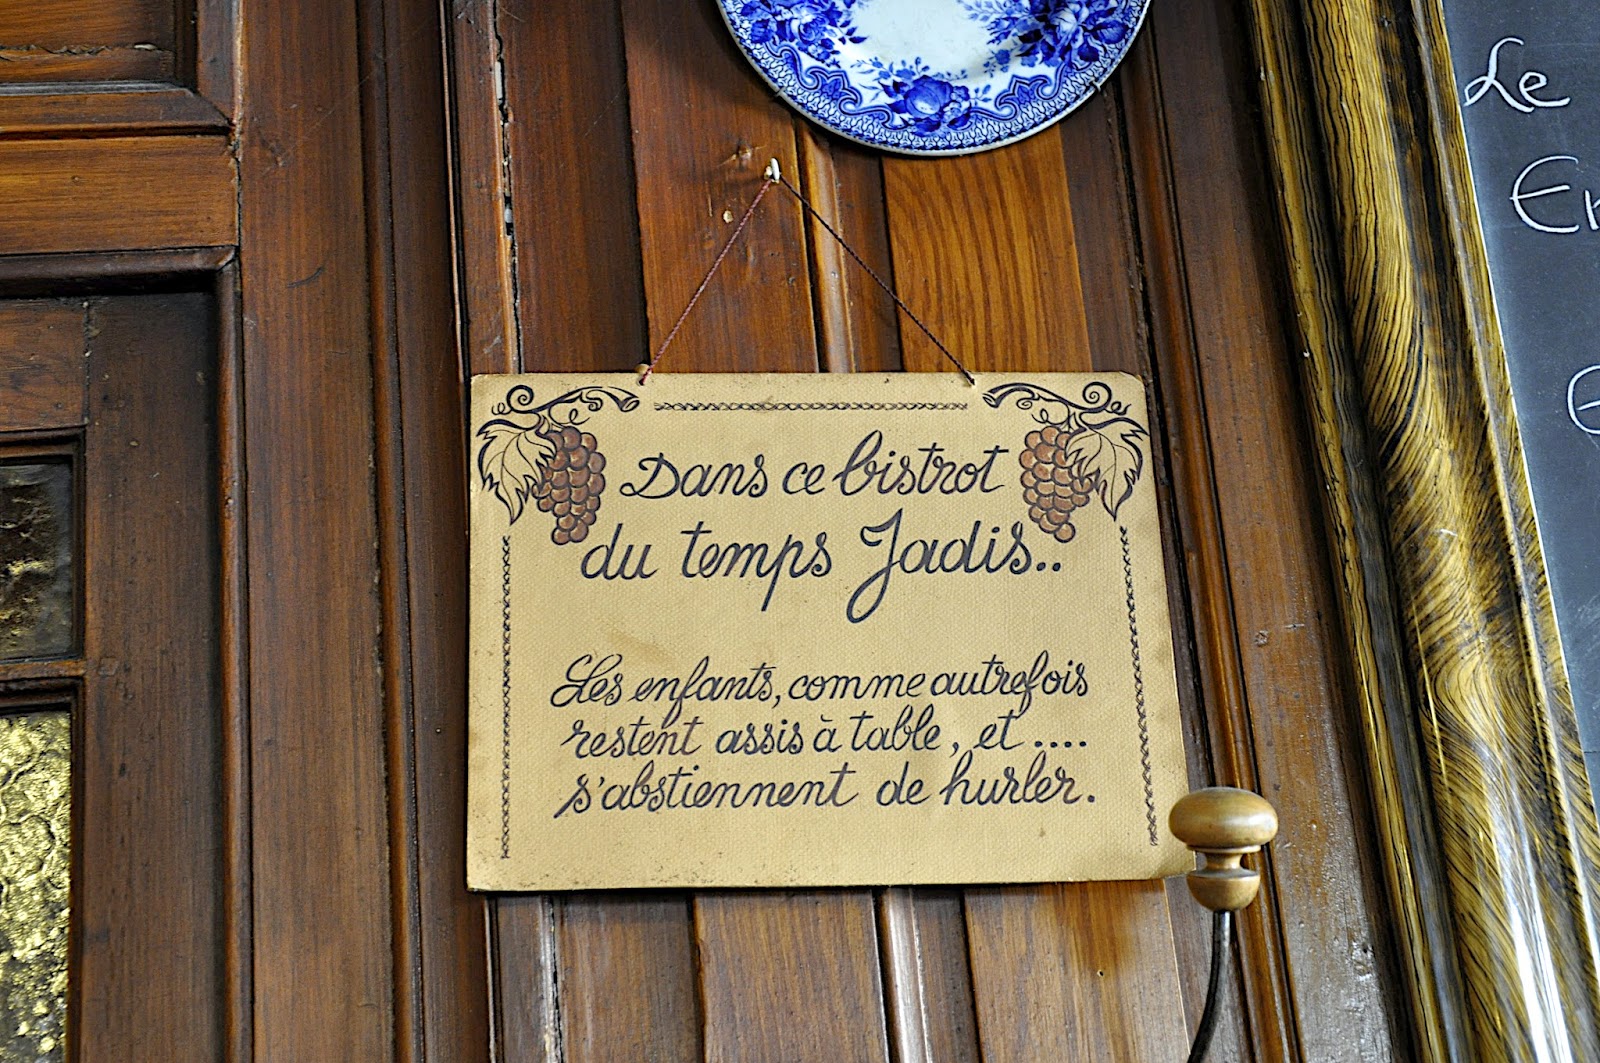 Dans ce bistrot
du temps Jadis..
Les enfants, comme autrefois
restent assis à table, et ....
s'abstiennent de hurler.
Le